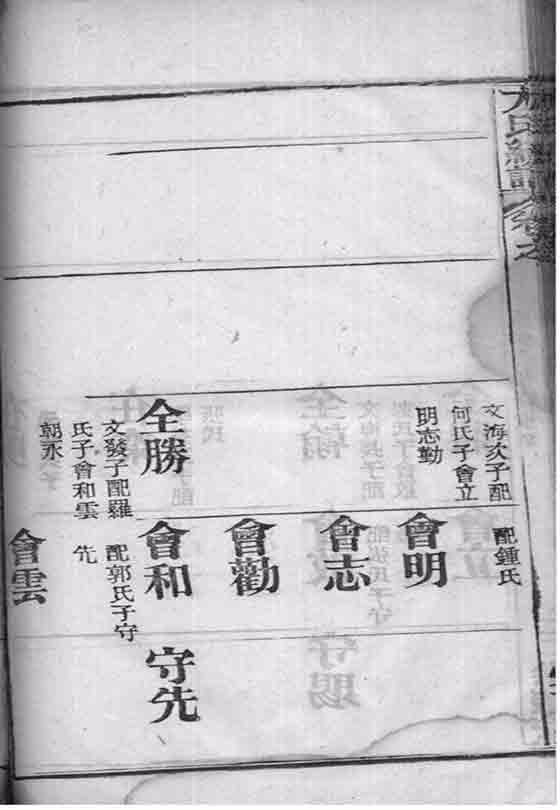 氏總譜卷之
文海次子配
何氏子會立
明志勤
全勝
文發子配羅
氏子會和雲
朝永
配鍾氏
會明
會志
會勸
會和
配郭氏子守
先
會雲
守先